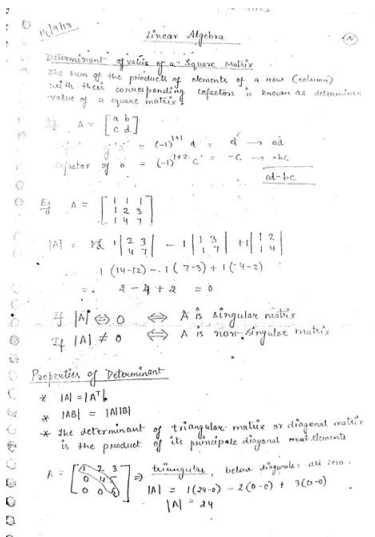 14/9/13
Linear Algebra
Determinant of value of a Square Matrix
The sum of the product of elements of a row (column)
with their corresponding cofactors is known as determinan
value of a square matrix
Eg A = [a b
c d]
= (-1)¹⁺¹ d = d → ad
cofactor of b = (-1)¹⁺² c = -c → -bc
ad-bc
Eg A = [1 1 1
1 2 3
1 4 7]
|A| = 1 |2 3
4 7| - 1 |1 3
1 7| + 1 |1 2
1 4|
1 (14-12) - 1 (7-3) + 1 (4-2)
= 2 - 4 + 2 = 0
If |A| ⇔ 0 ⇔ A is singular matrix
If |A| ≠ 0 ⇔ A is non-singular matrix
Properties of Determinant
* |A| = |Aᵀ|
* |AB| = |A||B|
* The determinant of triangular matrix or diagonal matrix
is the product of its principale diagonal elements
A = [1 2 3
0 4 5
0 0 6] ⇒ triangular, below diagonals all zero.
|A| = 1(24-0) - 2(0-0) + 3(0-0)
|A| = 24